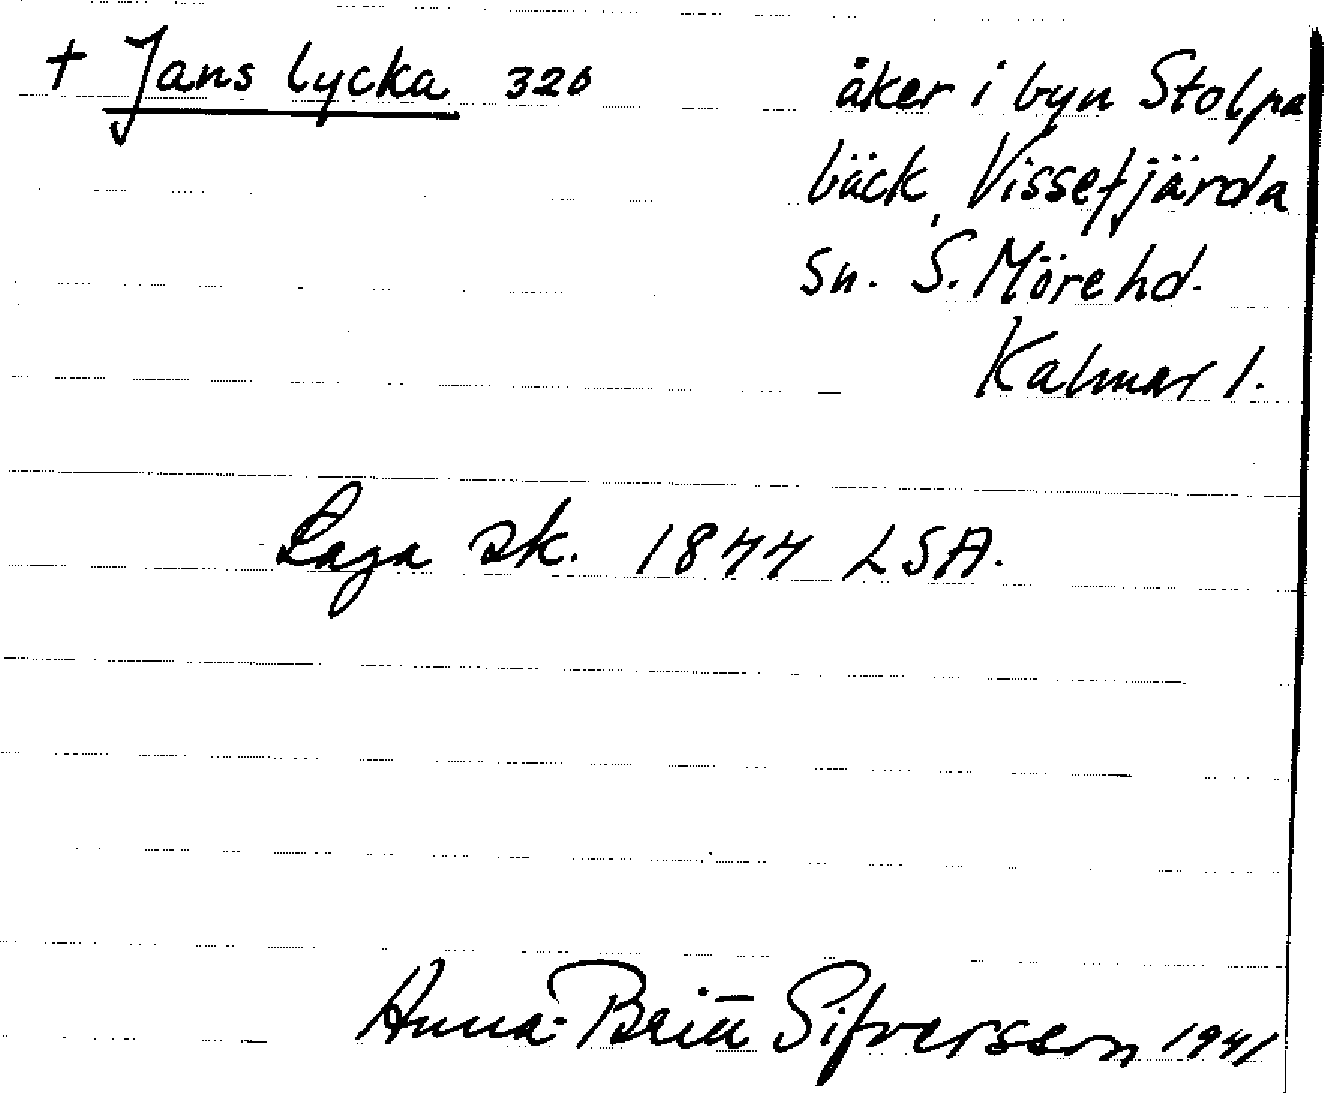 † Jans lycka 326
åker i byn Stolpa
bäck, Vissefjärda
sn. S. Möre hd.
Kalmar l.
Laga sk. 1844 LSA.
Anna-Britt Sifversson 1941